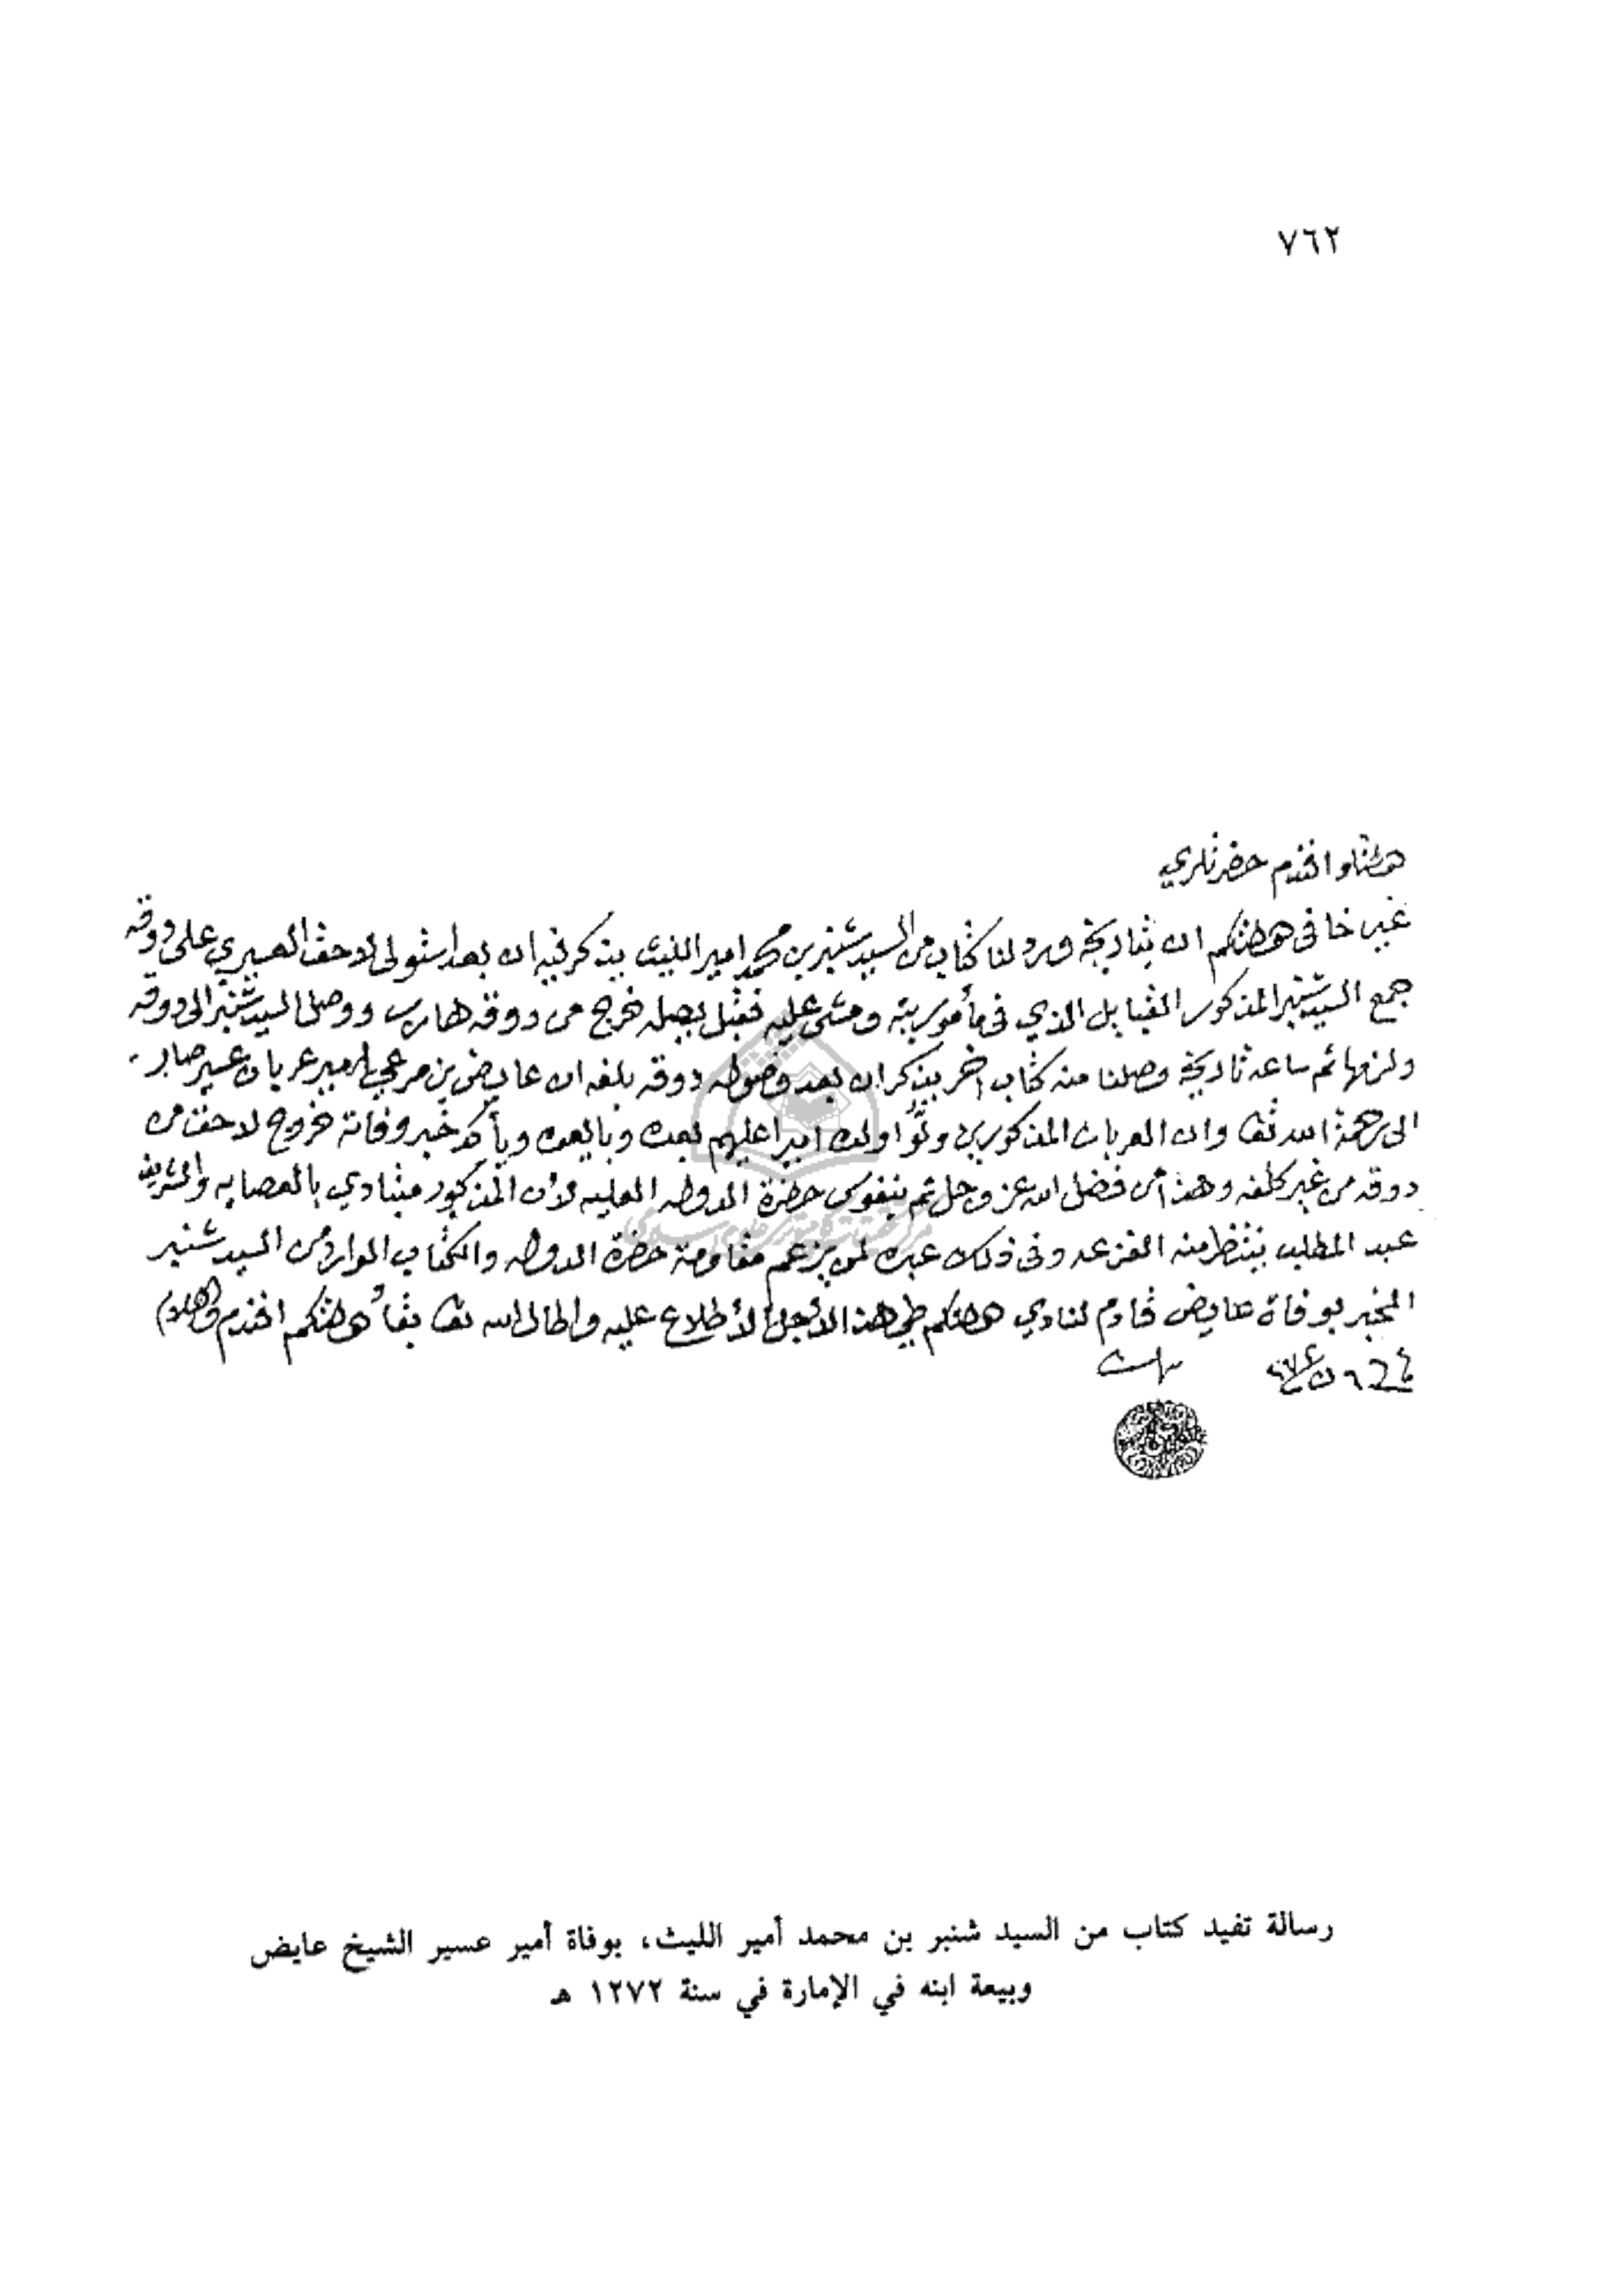 ٧٦٢
افندم حضرتلري
غير خافي ان بتاريخه ورد لنا كتاب من السيد شنبر بن محمد امير الليث يذكر فيه ان بعد استولى لاحق العسيري على دوقه
جمع السيد شنبر المذكور القبايل الذي في مأموريته ومشى عليه فقبل يصله خرج من دوقه هارب ووصل السيد شنبر الى دوقه
ولزمها ثم ساعة تاريخه وصلنا منه كتاب اخر يذكر ان بعد وصوله دوقه بلغه ان عايض بن مرعي امير عربان عسير صار
الى رحمة الله تعا وان العربان المذكورين ولّوا ولده اميرا عليهم بعده وبايعوه ويأكد خبر وفاته خروج لاحق من
دوقه من غير كلفه وهذا من فضل الله عز وجل ثم بنفوس حضرة الدوله العليه لأن المذكور متنادي بالعصابه والشريف
عبد المطلب ينتظر منه الفزعه وفي ذلك عبره لمن يزعم مقاومة حضرة الدوله والكتاب الوارد من السيد شنبر
المخبر بوفاة عايض قادم لنادي طي هذا لأجل الأطلاع عليه واطال الله تعا بقاء افندم
رسالة تفيد كتاب من السيد شنبر بن محمد أمير الليث، بوفاة أمير عسير الشيخ عايض
وبيعة ابنه في الإمارة في سنة ١٢٧٢ هـ